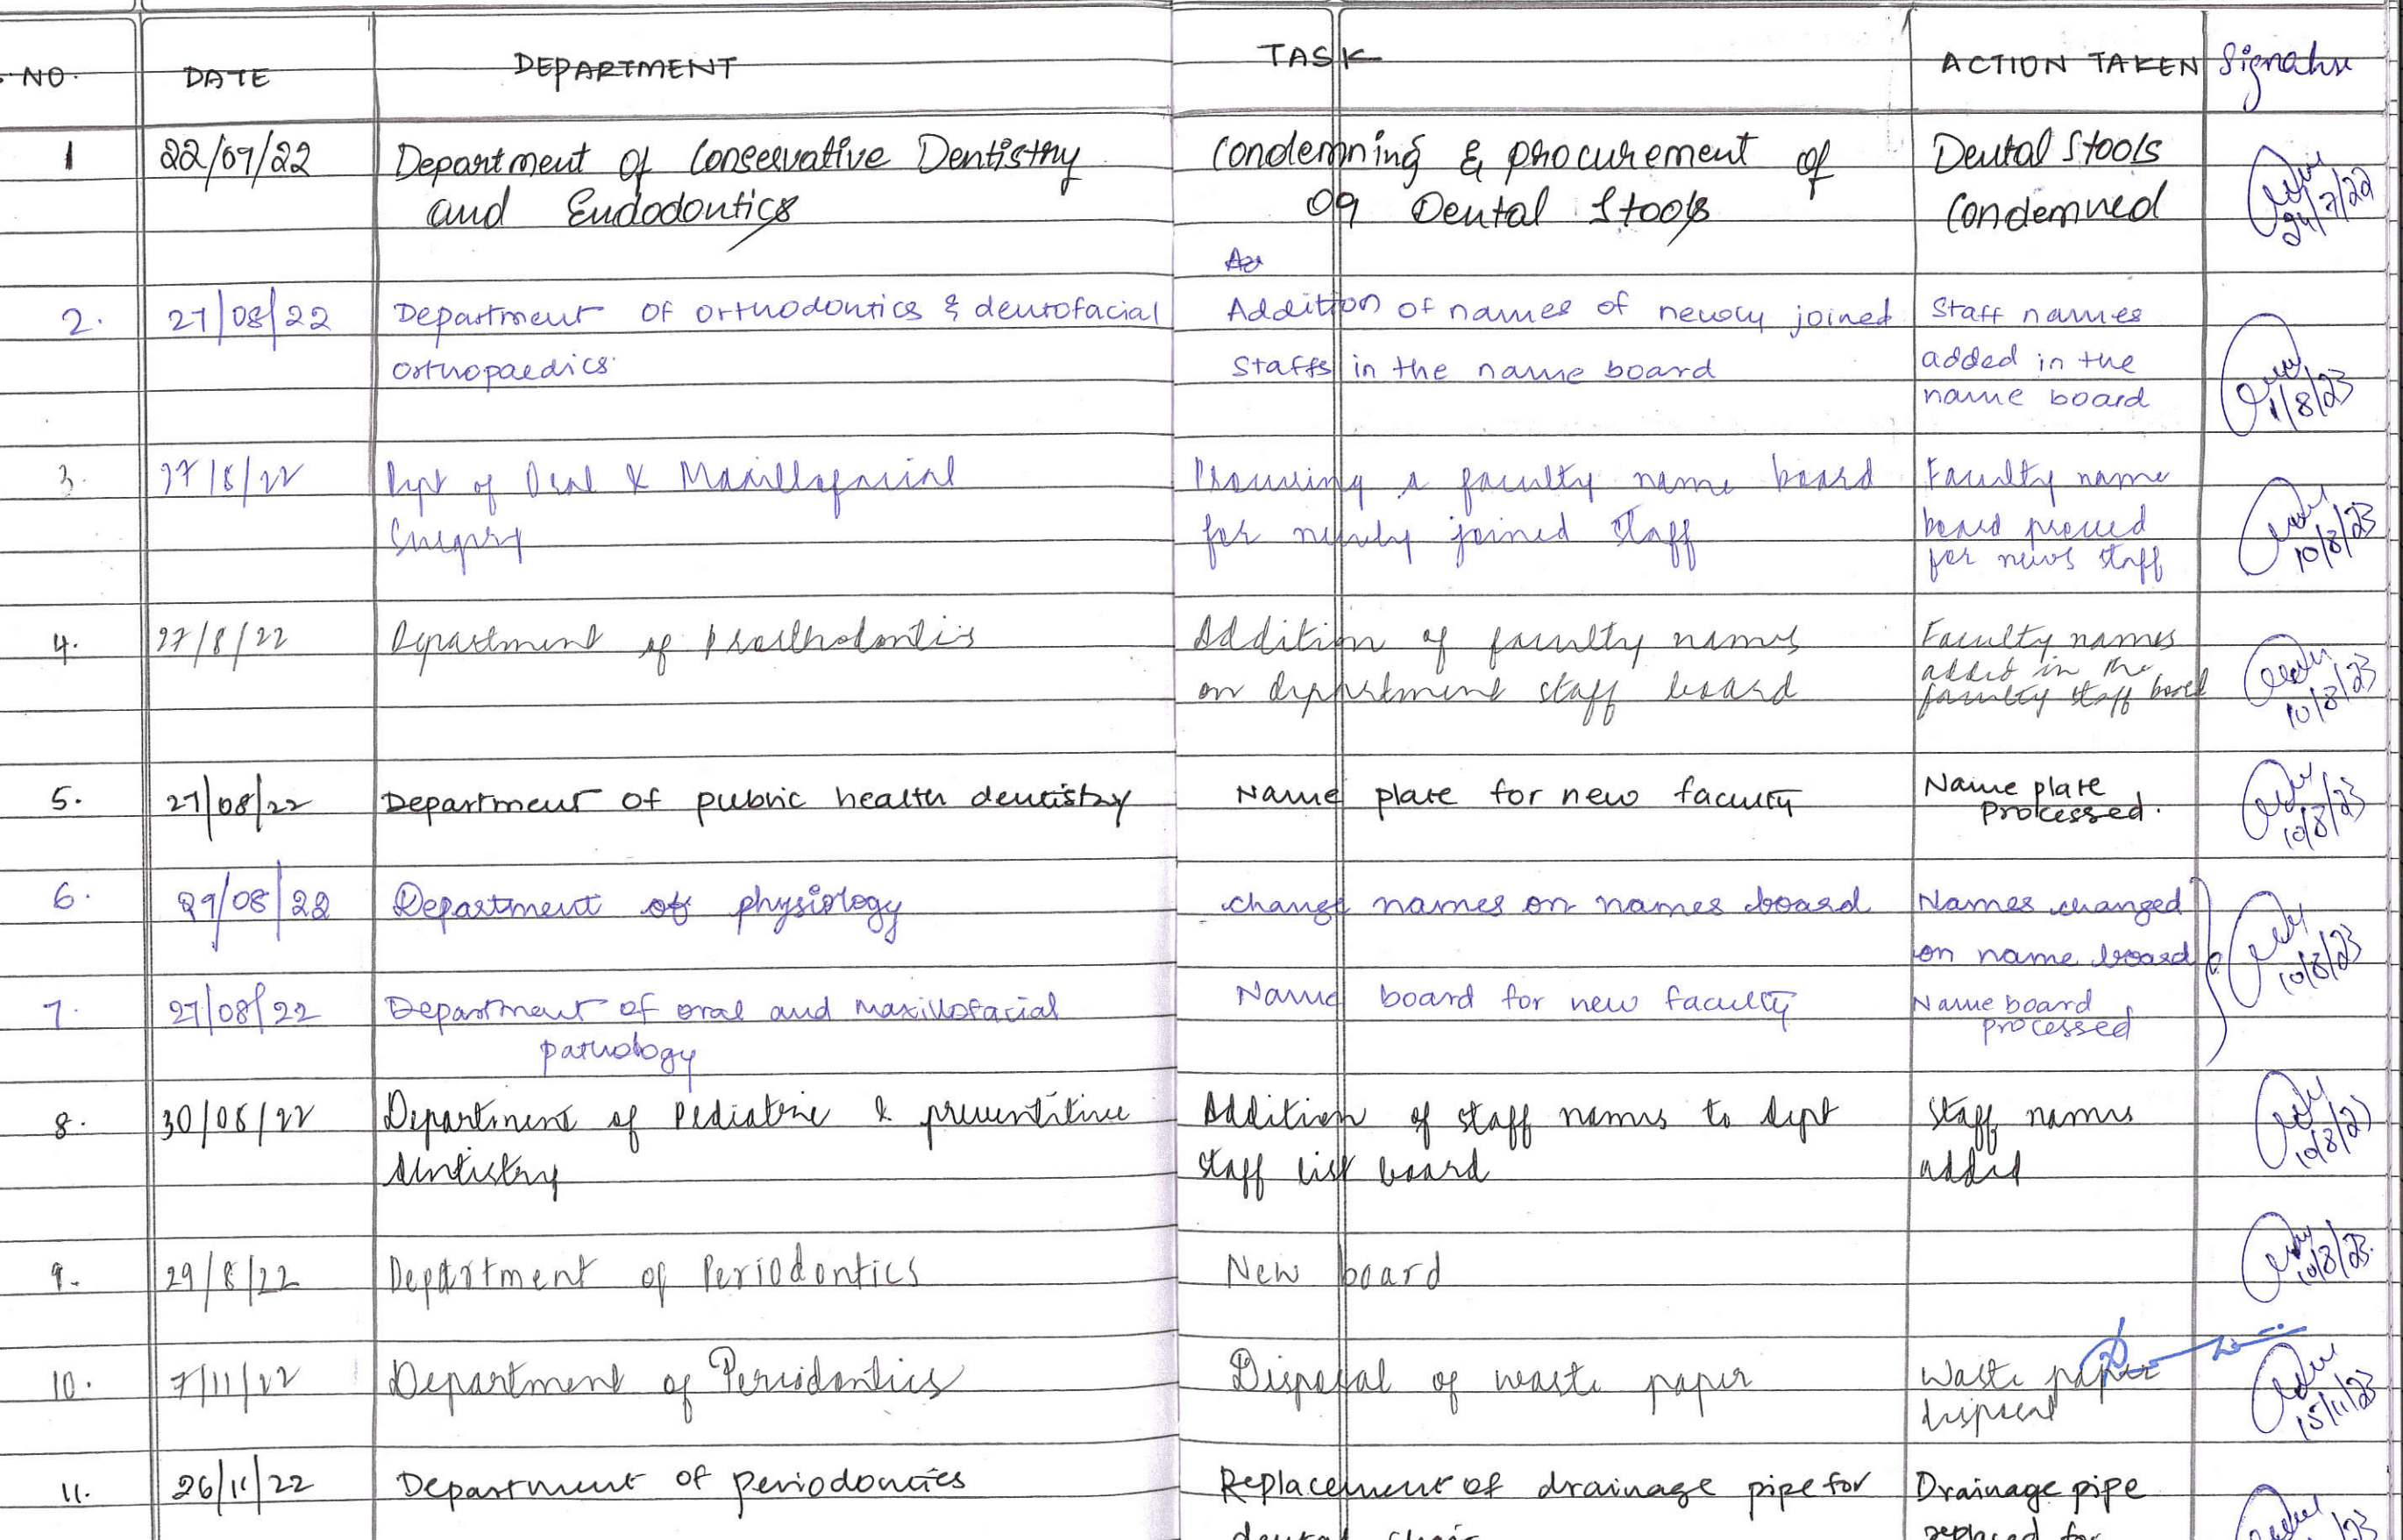 NO. DATE DEPARTMENT TASK ACTION TAKEN Signature
1 22/07/22 Department of Conservative Dentistry Condemning & procurement of Dental Stools
and Endodontics 09 Dental Stools Condemned
24/7/22
2. 27/08/22 Department of orthodontics & dentofacial Addition of names of newly joined Staff names
orthopaedics. Staffs in the name board added in the
name board
1/8/23
3. 27/8/22 Dept of Oral & Maxillofacial a faculty name board Faculty name
Surgery for newly joined staff board
for staff
10/8/23
4. 27/8/22 Department of Addition of faculty names Faculty names
on department staff board added in the
faculty staff board
10/8/23
5. 27/08/22 Department of public health dentistry Name plate for new faculty Name plate
processed.
10/8/23
6. 29/08/22 Department of physiology change names on names board Names changed
on name board
10/8/23
7. 27/08/22 Department of oral and maxillofacial Name board for new faculty Name board
pathology processed
8. 30/08/22 Department of Pediatric & preventitive Addition of staff names to dept Staff names
dentistry staff list board added
10/8/23
9. 29/8/22 Department of Periodontics New board
10/8/23
10. 7/11/22 Department of Periodontics Disposal of waste paper Waste paper
15/11/23
11. 26/11/22 Department of periodontics Replacement of drainage pipe for Drainage pipe
dental chair replaced for